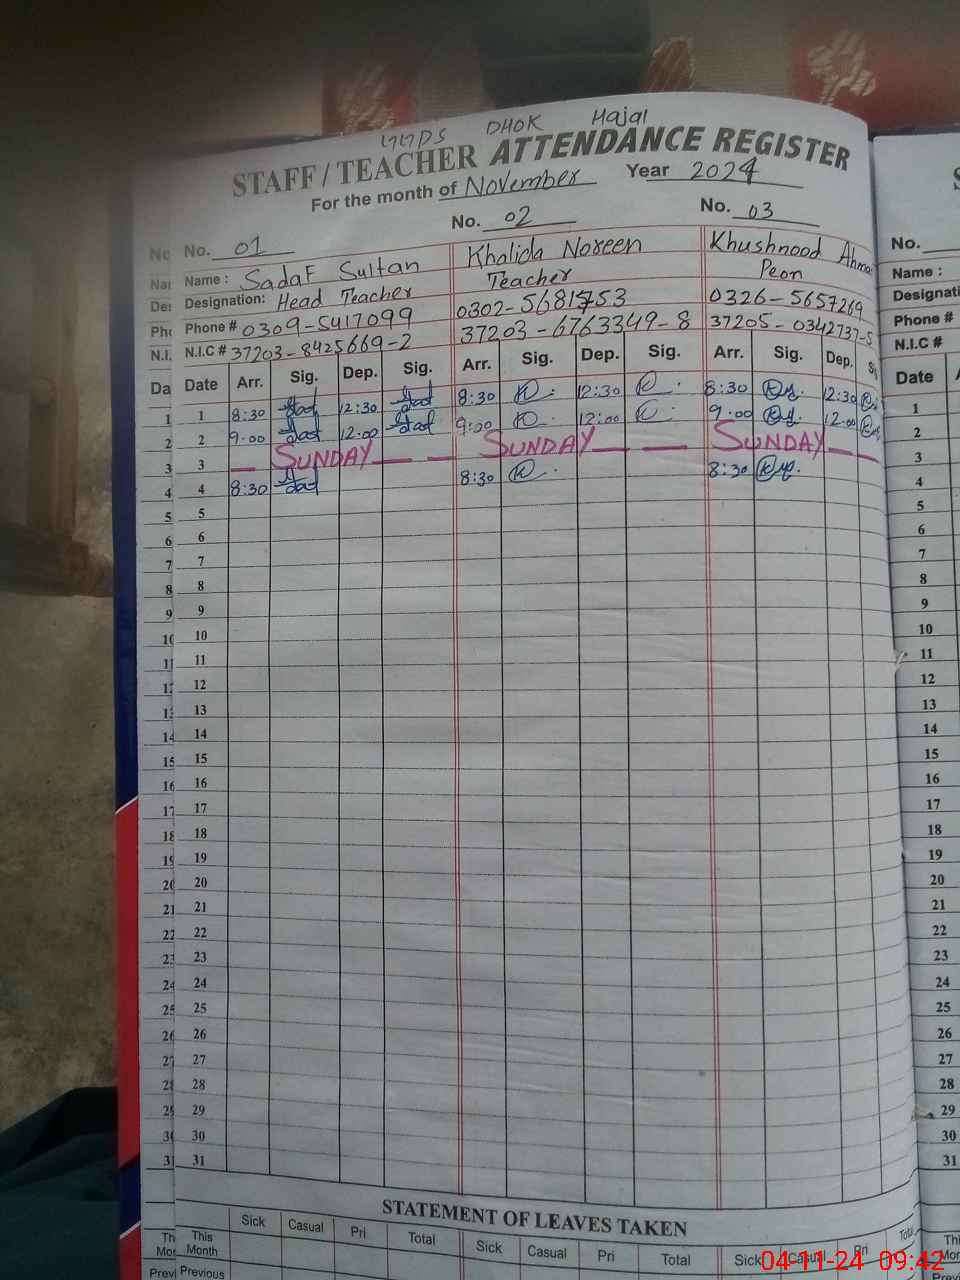 GGPS DHOK Hajal
STAFF / TEACHER ATTENDANCE REGISTER
For the month of November Year 2024
No. 01 No. 02 No. 03 No.
Name : Sadaf Sultan Khalida Noreen Khushnood Ahma Name :
Designation: Head Teacher Teacher Peon
Phone # 0309-5417099 0302-5681753 0326-5657269 Phone #
N.I.C # 37203-8425669-2 37203-6763349-8 37205-0342737-5 N.I.C #
Date Arr. Sig. Dep. Sig. Arr. Sig. Dep. Sig. Arr. Sig. Dep. Date
1 8:30 12:30 8:30 12:30 8:30 12:30 1
2 9:00 12:00 9:00 12:00 9:00 12:00 2
3 SUNDAY SUNDAY SUNDAY 3
4 8:30 8:30 8:30 4
5 5
6 6
7 7
8 8
9 9
10 10
11 11
12 12
13 13
14 14
15 15
16 16
17 17
18 18
19 19
20 20
21 21
22 22
23 23
24 24
25 25
26 26
27 27
28 28
29 29
30 30
31 31
STATEMENT OF LEAVES TAKEN
Sick Casual Pri Total Sick Casual Pri Total Sick Casual Pri Total
This Month
Previous
04-11-24 09:42